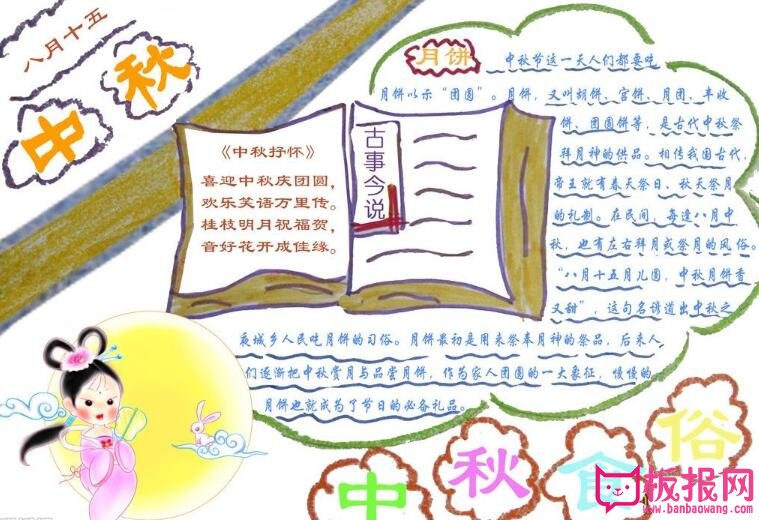 八月十五
中秋
《中秋抒怀》
喜迎中秋庆团圆，
欢乐笑语万里传。
桂枝明月祝福贺，
音好花开成佳缘。
古事今说
月饼
中秋节这一天人们都要吃
月饼以示“团圆”。月饼，又叫胡饼、宫饼、月团、丰收
饼、团圆饼等，是古代中秋祭
拜月神的供品。相传我国古代，
帝王就有春天祭日、秋天祭月
的礼制。在民间，每逢八月中
秋，也有左右拜月或祭月的风俗。
“八月十五月儿圆，中秋月饼香
又甜”，这句名谚道出中秋之
夜城乡人民吃月饼的习俗。月饼最初是用来祭奉月神的祭品，后来人
们逐渐把中秋赏月与品尝月饼，作为家人团圆的一大象征，慢慢的
月饼也就成为了节日的必备礼品。
中秋食俗
板报网
www.banbaowang.com